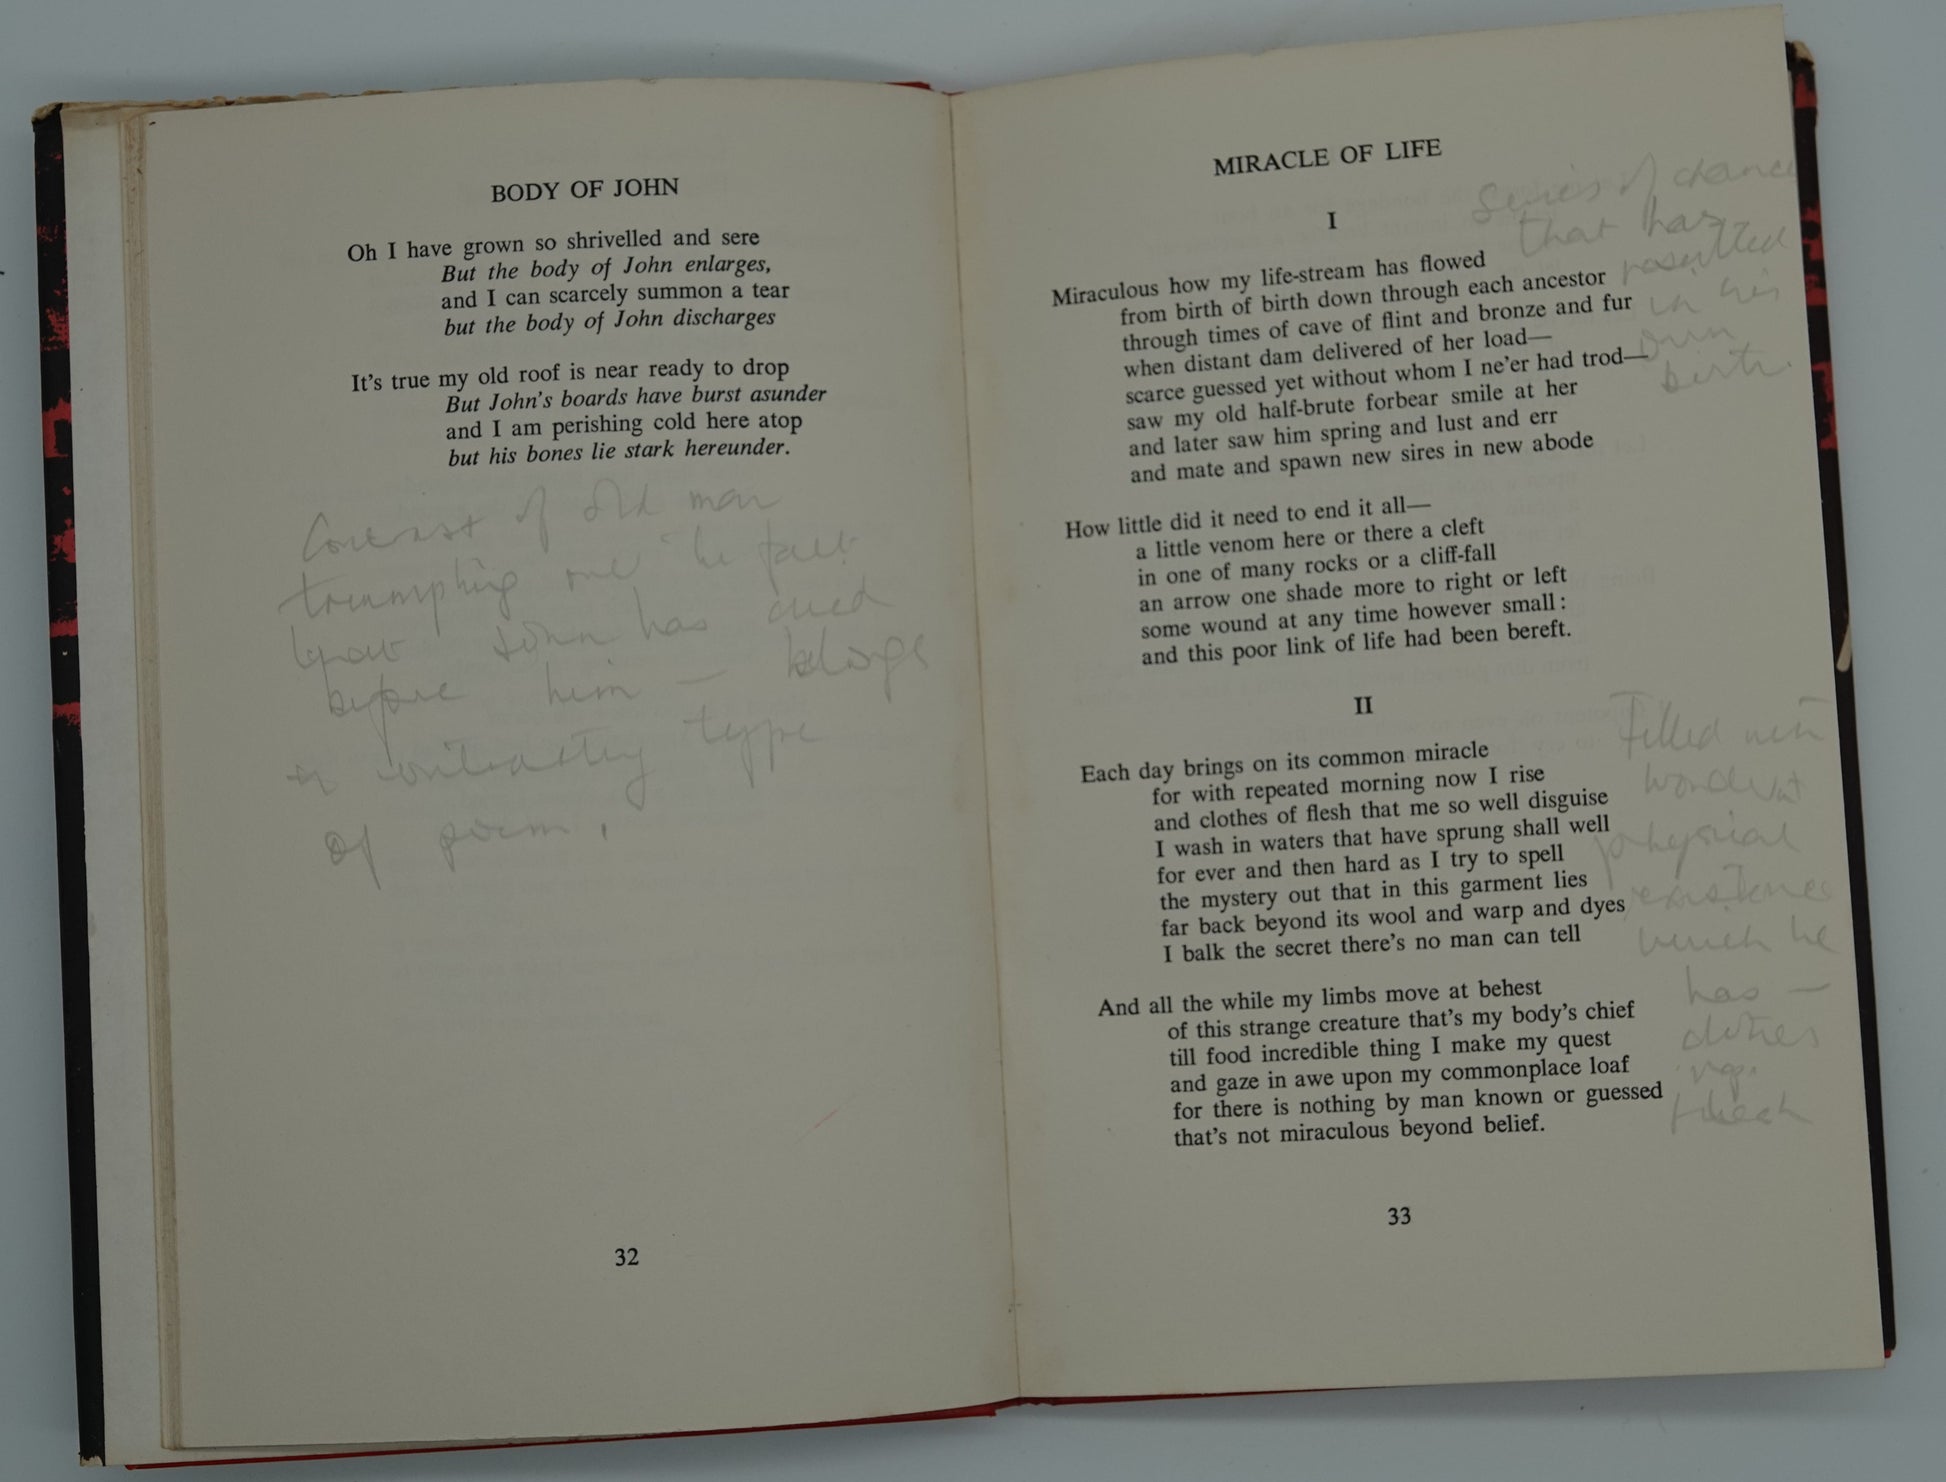 BODY OF JOHN
Oh I have grown so shrivelled and sere
But the body of John enlarges,
and I can scarcely summon a tear
but the body of John discharges
It's true my old roof is near ready to drop
But John's boards have burst asunder
and I am perishing cold here atop
but his bones lie stark hereunder.
Contrast of old man
triumphing over the fact
John has died
before him — belongs
to contrasting type
of poem.
32
MIRACLE OF LIFE
I
Series of chance
that has
resulted
in his
own
birth.
Miraculous how my life-stream has flowed
from birth of birth down through each ancestor
through times of cave of flint and bronze and fur
when distant dam delivered of her load—
scarce guessed yet without whom I ne'er had trod—
saw my old half-brute forbear smile at her
and later saw him spring and lust and err
and mate and spawn new sires in new abode
How little did it need to end it all—
a little venom here or there a cleft
in one of many rocks or a cliff-fall
an arrow one shade more to right or left
some wound at any time however small:
and this poor link of life had been bereft.
II
Each day brings on its common miracle
for with repeated morning now I rise
and clothes of flesh that me so well disguise
I wash in waters that have sprung shall well
for ever and then hard as I try to spell
the mystery out that in this garment lies
far back beyond its wool and warp and dyes
I balk the secret there's no man can tell
And all the while my limbs move at behest
of this strange creature that's my body's chief
till food incredible thing I make my quest
and gaze in awe upon my commonplace loaf
for there is nothing by man known or guessed
that's not miraculous beyond belief.
Filled with
wonder at
physical
existence
which he
has —
clothes
33